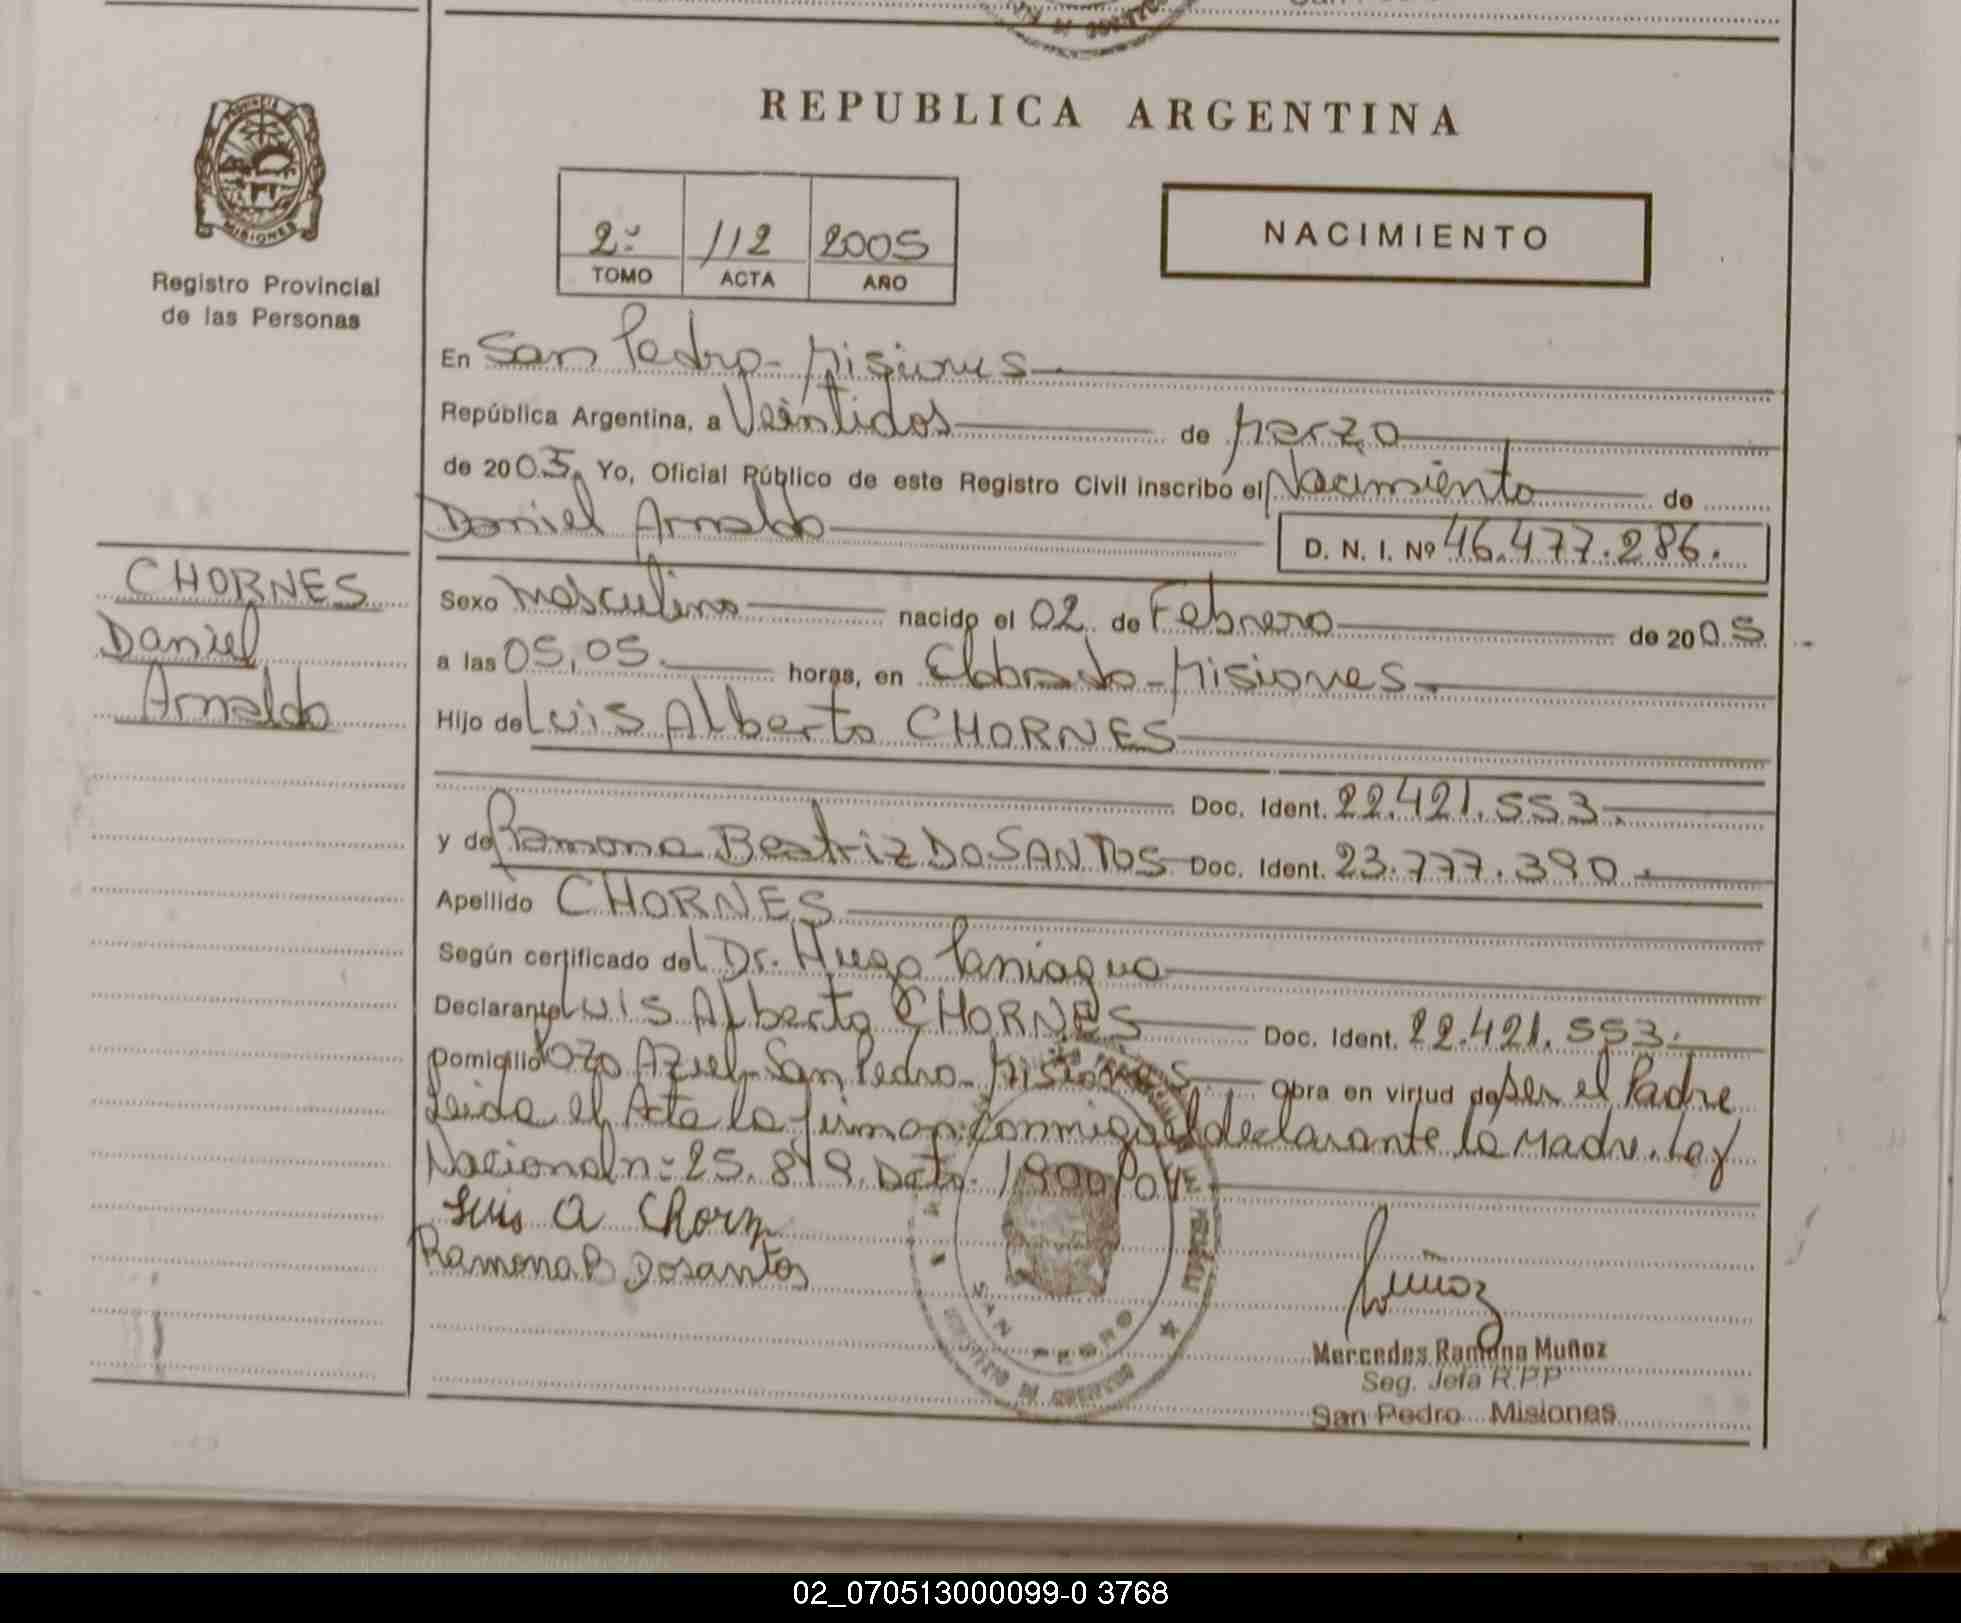 REPUBLICA ARGENTINA
MISIONES
Registro Provincial
de las Personas
2º 112 2005
TOMO ACTA AÑO
NACIMIENTO
En San Pedro - Misiones
República Argentina, a Veintidos de Marzo
de 2005. Yo, Oficial Público de este Registro Civil inscribo el Nacimiento de
Daniel Arnaldo D. N. I. Nº 46.477.286.
CHORNES
Daniel
Arnaldo
Sexo Masculino nacido el 02 de Febrero de 2005
a las 05,05. horas, en Eldorado - Misiones.
Hijo de Luis Alberto CHORNES
Doc. Ident. 22.421.553.
y de Ramona Beatriz DOSANTOS Doc. Ident. 23.777.390.
Apellido CHORNES
Según certificado del Dr. Hugo Paniagua
Declarante Luis Alberto CHORNES Doc. Ident. 22.421.553.
Domicilio Pozo Azul - San Pedro - Misiones Obra en virtud de ser el Padre
Leida el Acta la firman conmigo el declarante la Madre. Ley
Nacional nº 25.819. Dcto. 1900/04
Luis A Chorn
Ramona B Dosantos
SAN PEDRO
MINISTERIO DE GOBIERNO
Muñoz
Mercedes Ramona Muñoz
Seg. Jefa R.P.P
San Pedro Misiones
02_070513000099-0 3768